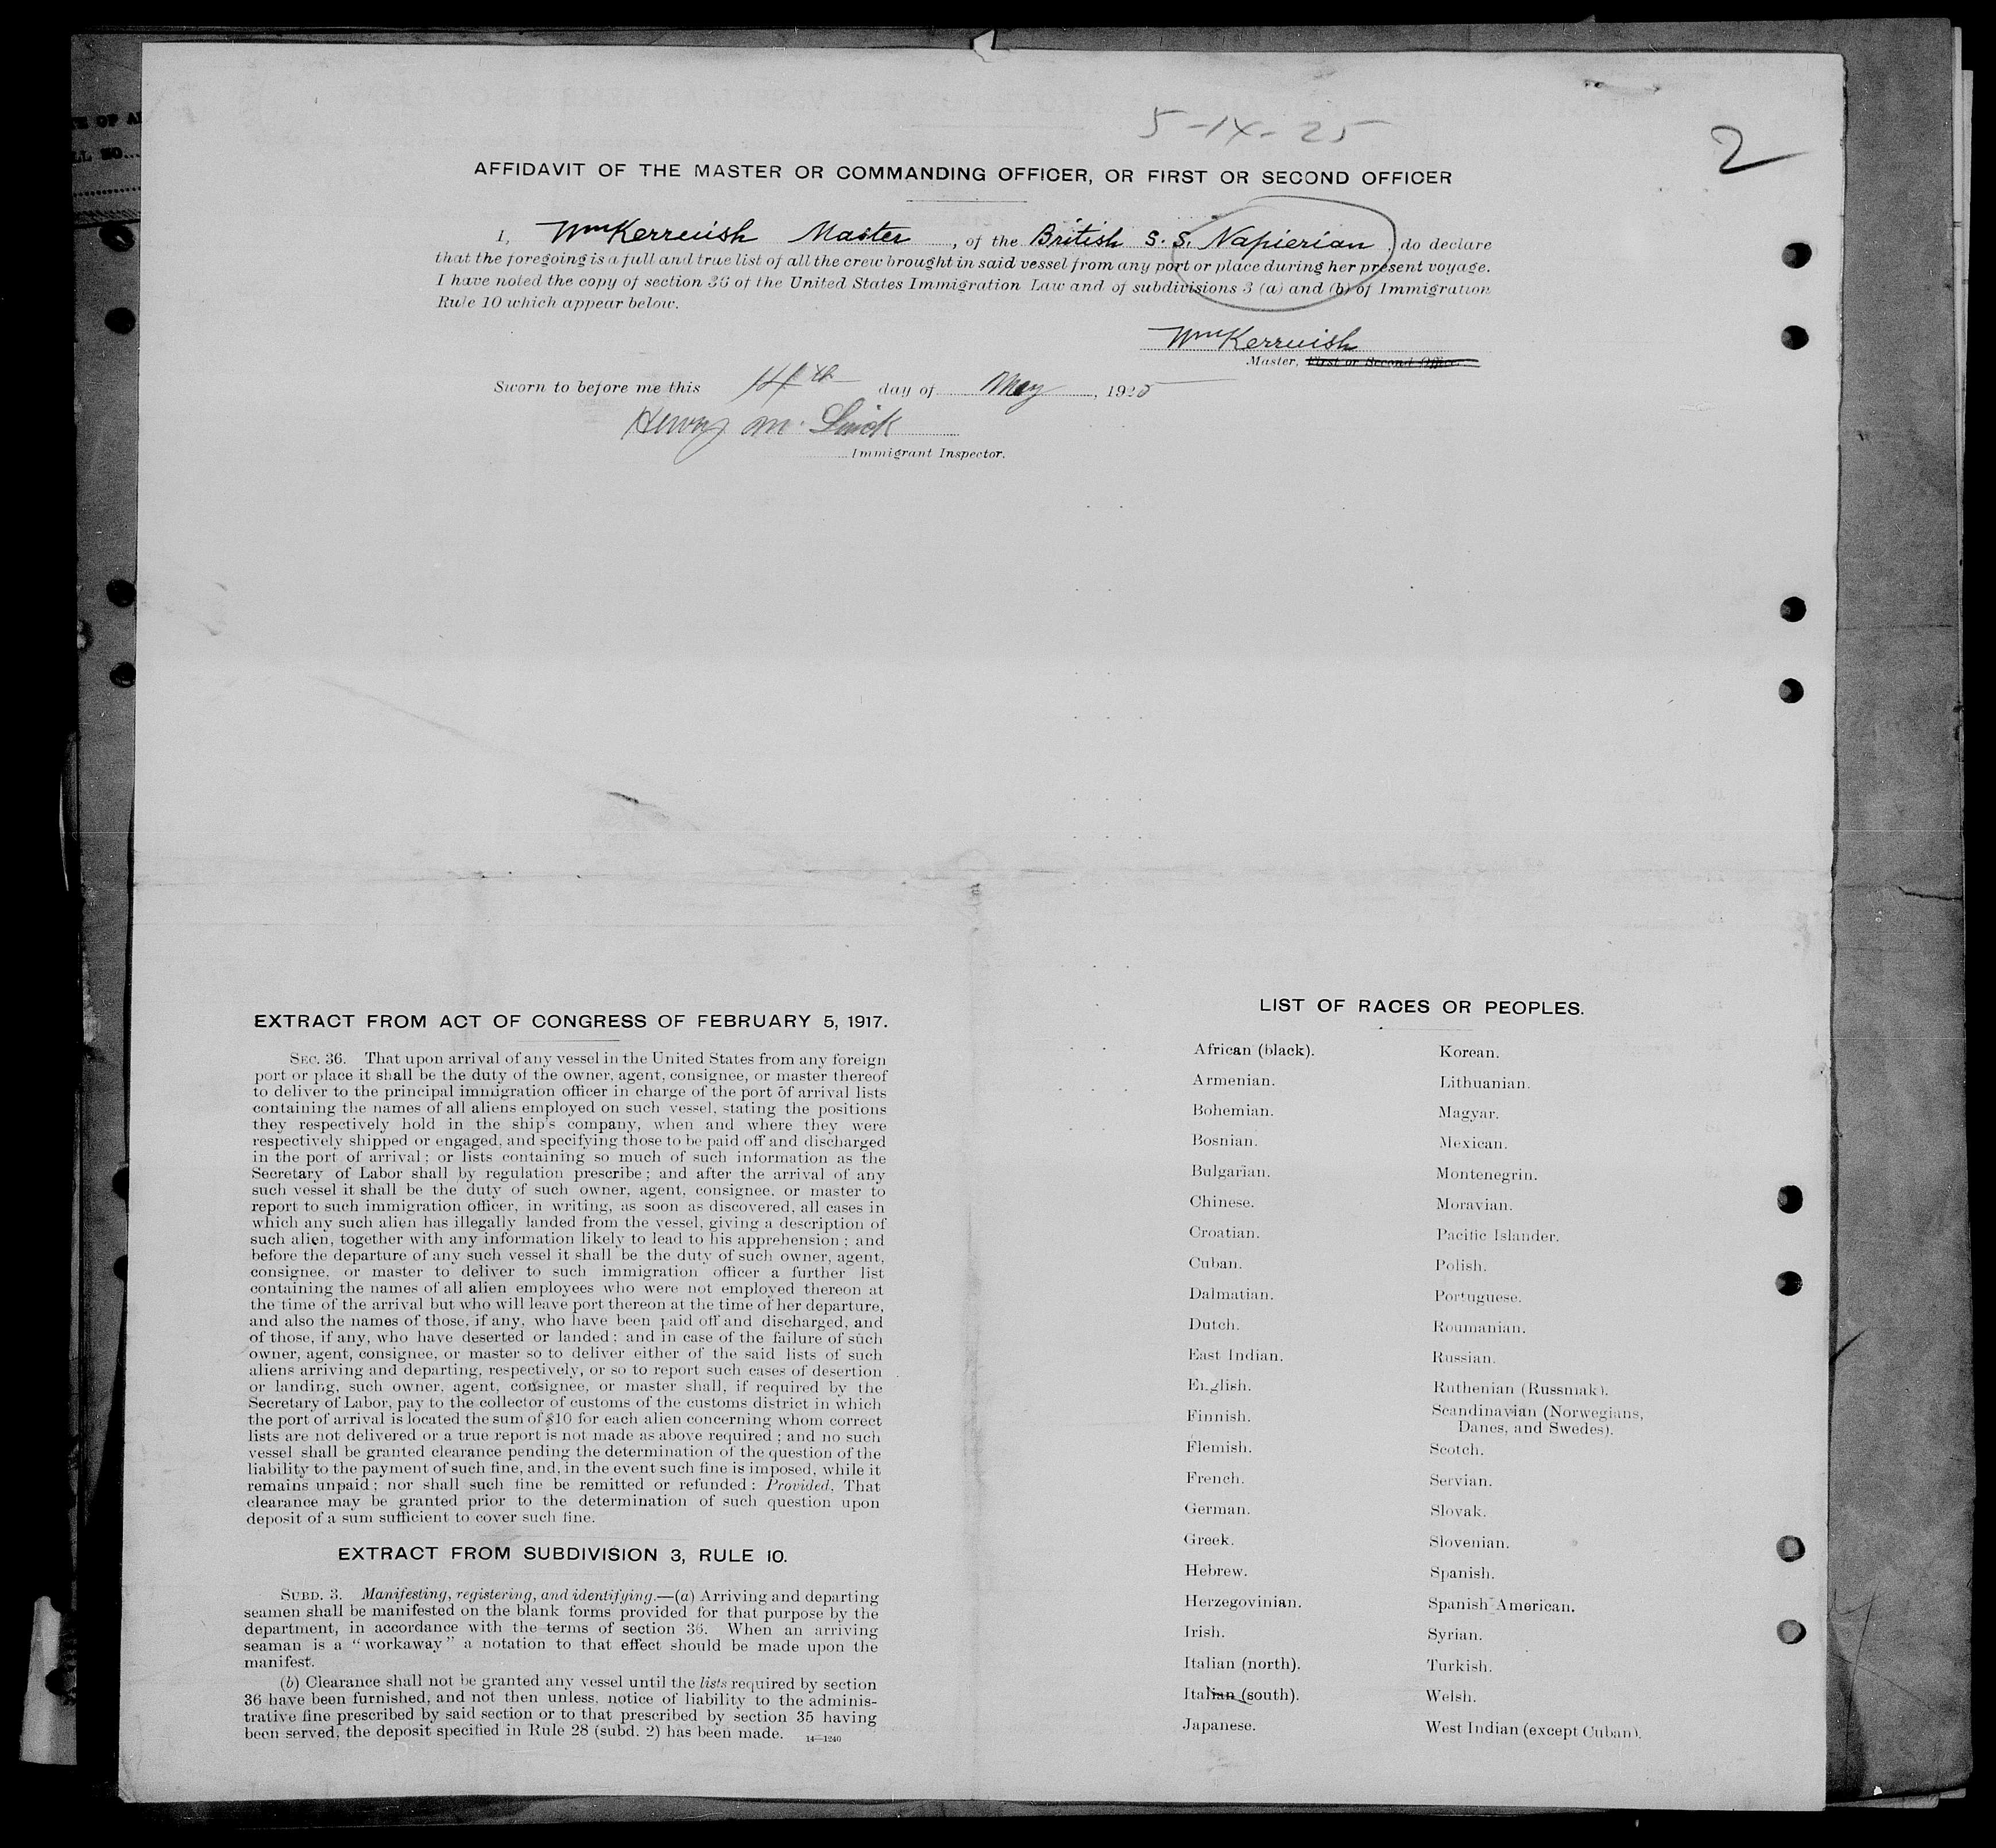 5-14-25
2
AFFIDAVIT OF THE MASTER OR COMMANDING OFFICER, OR FIRST OR SECOND OFFICER
I, Wm Kerruish Master, of the British S.S. Napierian, do declare
that the foregoing is a full and true list of all the crew brought in said vessel from any port or place during her present voyage.
I have noted the copy of section 36 of the United States Immigration Law and of subdivisions 3 (a) and (b) of Immigration
Rule 10 which appear below.
Wm Kerruish
Master, First or Second Officer.
Sworn to before me this 14th day of May, 1925
Henry M.
Immigrant Inspector.
EXTRACT FROM ACT OF CONGRESS OF FEBRUARY 5, 1917.
SEC. 36. That upon arrival of any vessel in the United States from any foreign
port or place it shall be the duty of the owner, agent, consignee, or master thereof
to deliver to the principal immigration officer in charge of the port of arrival lists
containing the names of all aliens employed on such vessel, stating the positions
they respectively hold in the ship's company, when and where they were
respectively shipped or engaged, and specifying those to be paid off and discharged
in the port of arrival; or lists containing so much of such information as the
Secretary of Labor shall by regulation prescribe; and after the arrival of any
such vessel it shall be the duty of such owner, agent, consignee, or master to
report to such immigration officer, in writing, as soon as discovered, all cases in
which any such alien has illegally landed from the vessel, giving a description of
such alien, together with any information likely to lead to his apprehension; and
before the departure of any such vessel it shall be the duty of such owner, agent,
consignee, or master to deliver to such immigration officer a further list
containing the names of all alien employees who were not employed thereon at
the time of the arrival but who will leave port thereon at the time of her departure,
and also the names of those, if any, who have been paid off and discharged, and
of those, if any, who have deserted or landed; and in case of the failure of such
owner, agent, consignee, or master so to deliver either of the said lists of such
aliens arriving and departing, respectively, or so to report such cases of desertion
or landing, such owner, agent, consignee, or master shall, if required by the
Secretary of Labor, pay to the collector of customs of the customs district in which
the port of arrival is located the sum of $10 for each alien concerning whom correct
lists are not delivered or a true report is not made as above required; and no such
vessel shall be granted clearance pending the determination of the question of the
liability to the payment of such fine, and, in the event such fine is imposed, while it
remains unpaid; nor shall such fine be remitted or refunded: Provided, That
clearance may be granted prior to the determination of such question upon
deposit of a sum sufficient to cover such fine.
EXTRACT FROM SUBDIVISION 3, RULE 10.
SUBD. 3. Manifesting, registering, and identifying.—(a) Arriving and departing
seamen shall be manifested on the blank forms provided for that purpose by the
department, in accordance with the terms of section 36. When an arriving
seaman is a "workaway" a notation to that effect should be made upon the
manifest.
(b) Clearance shall not be granted any vessel until the lists required by section
36 have been furnished, and not then unless, notice of liability to the adminis-
trative fine prescribed by said section or to that prescribed by section 35 having
been served, the deposit specified in Rule 28 (subd. 2) has been made. 14—1240
LIST OF RACES OR PEOPLES.
African (black).
Armenian.
Bohemian.
Bosnian.
Bulgarian.
Chinese.
Croatian.
Cuban.
Dalmatian.
Dutch.
East Indian.
English.
Finnish.
Flemish.
French.
German.
Greek.
Hebrew.
Herzegovinian.
Irish.
Italian (north).
Italian (south).
Japanese.
Korean.
Lithuanian.
Magyar.
Mexican.
Montenegrin.
Moravian.
Pacific Islander.
Polish.
Portuguese.
Roumanian.
Russian.
Ruthenian (Russniak).
Scandinavian (Norwegians,
Danes, and Swedes).
Scotch.
Servian.
Slovak.
Slovenian.
Spanish.
Spanish American.
Syrian.
Turkish.
Welsh.
West Indian (except Cuban).